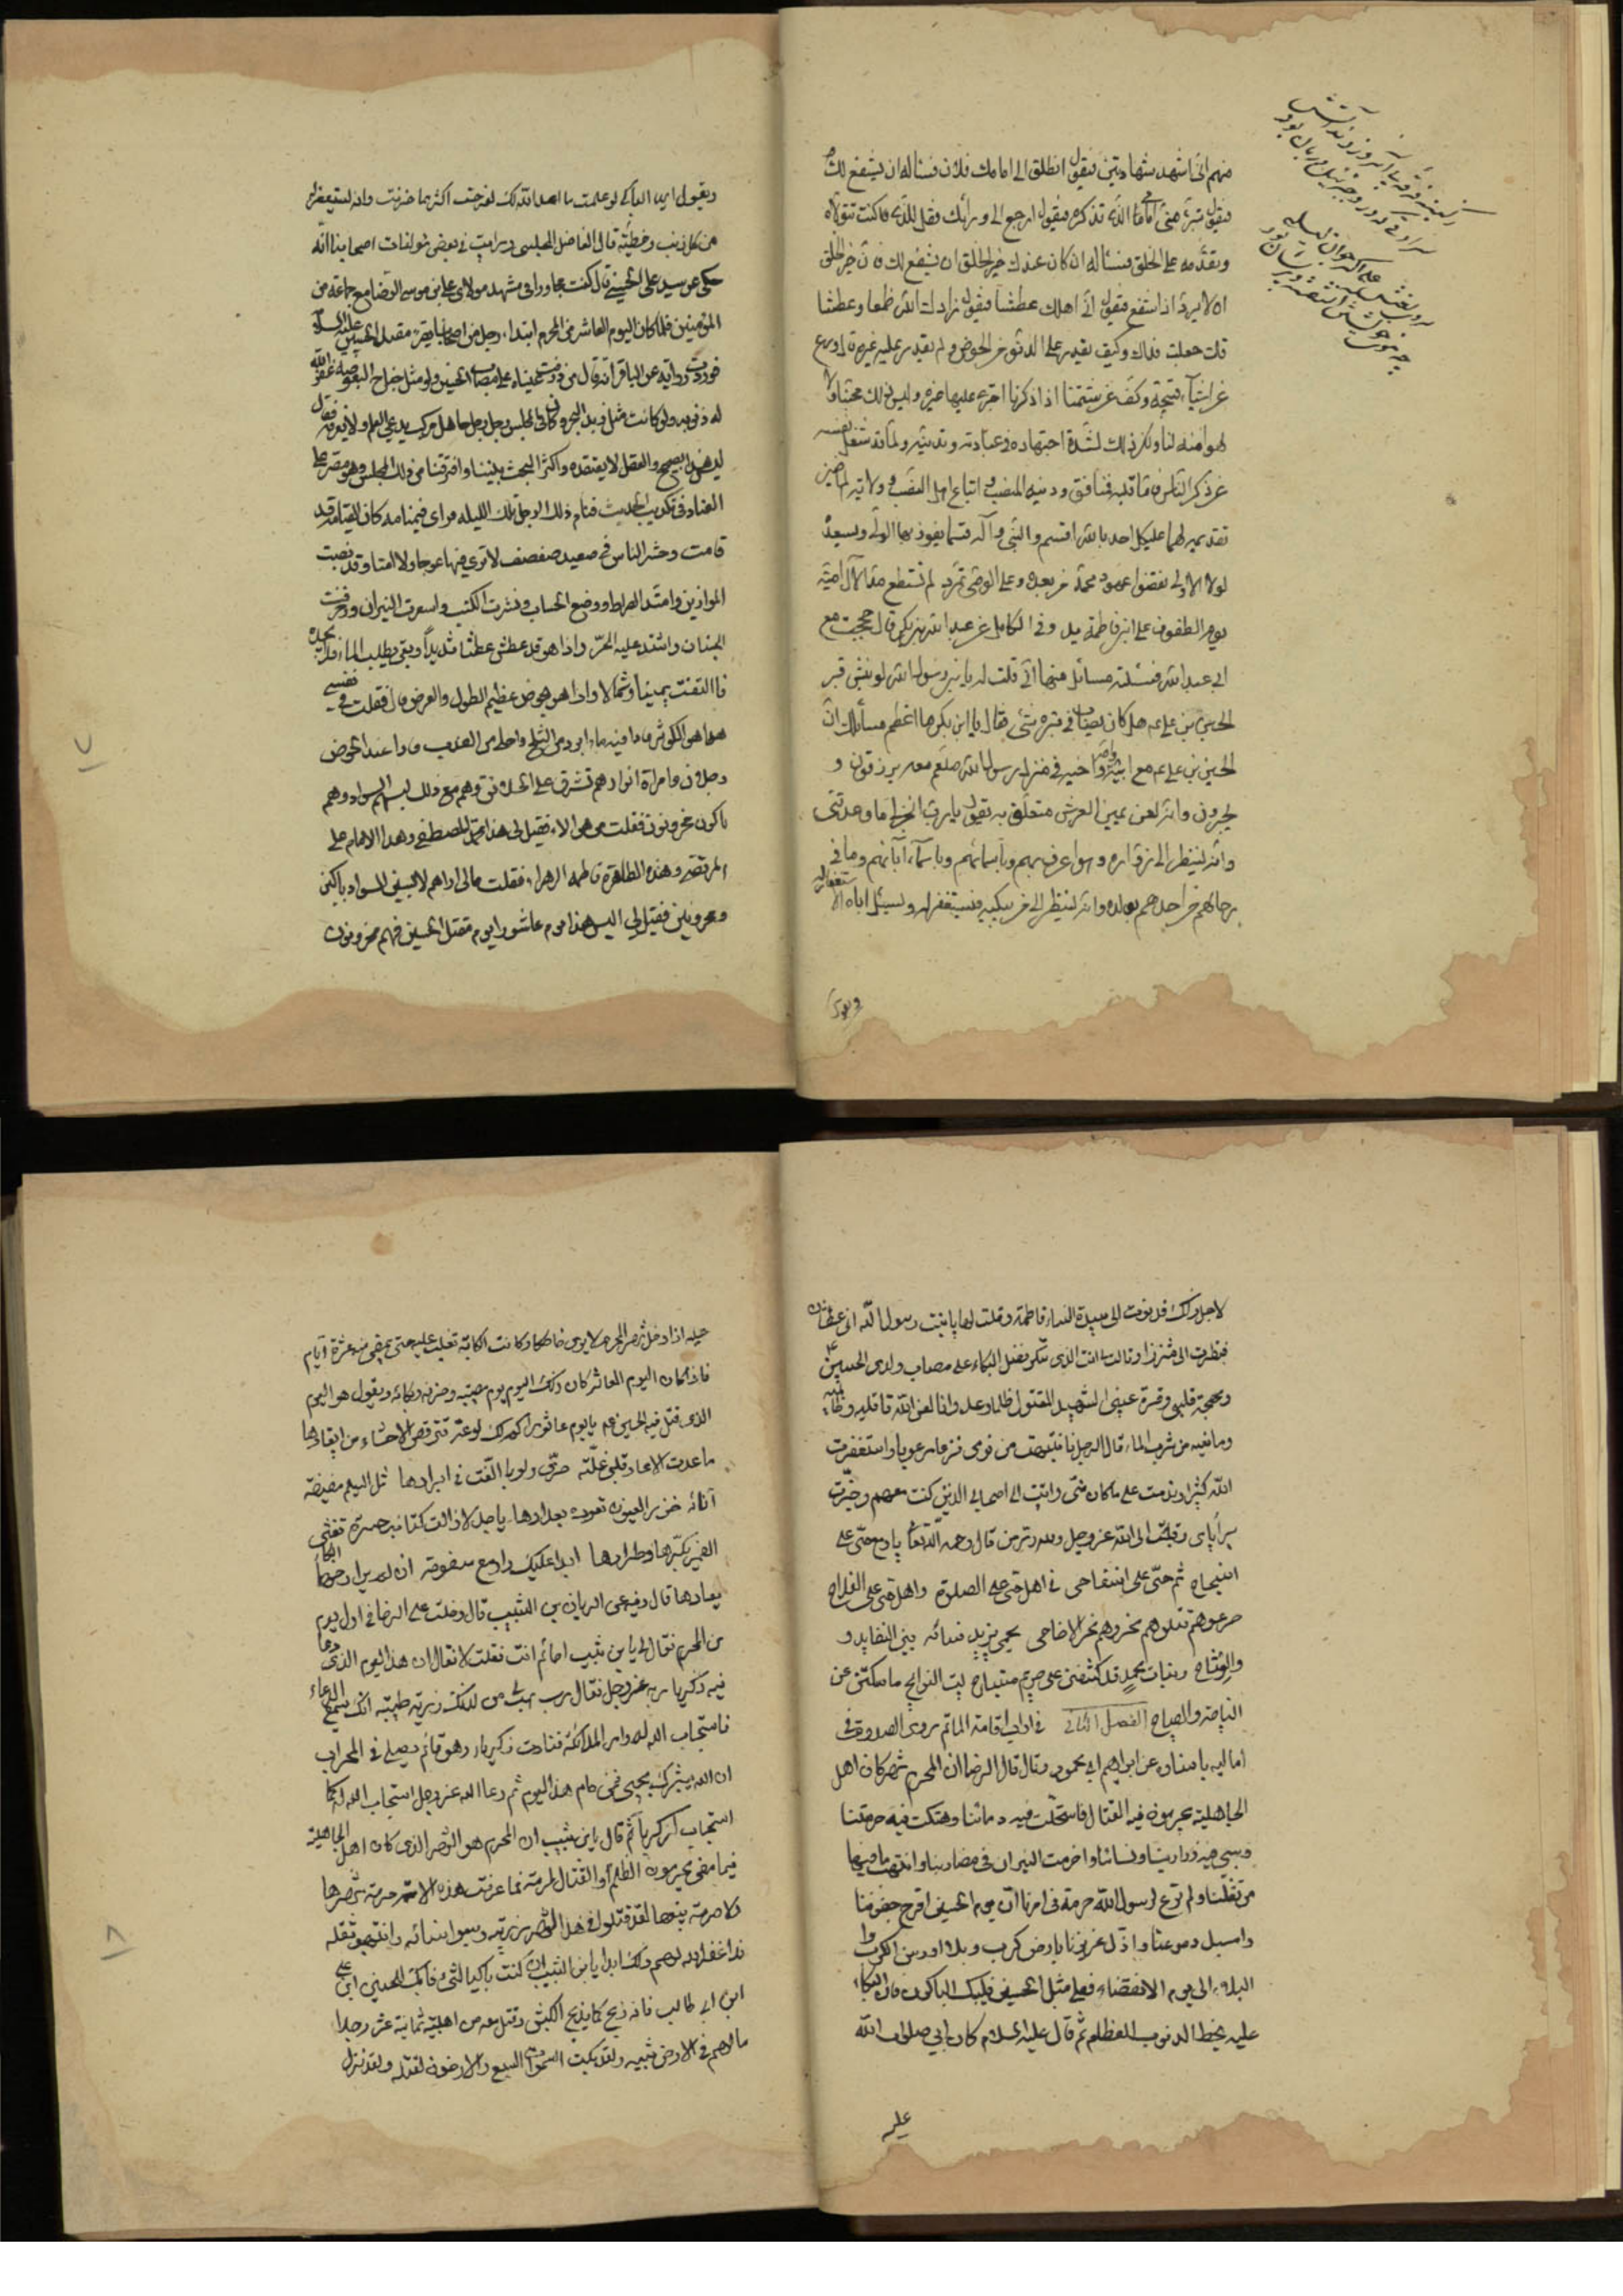 منهم انی اشهد شهادتین فیقول انطلق الی امامك فلان فسئاله ان یشفع لك
فیقول تبرّء منی امامی الذی تذكره فیقول ارجع الی ورائك فقل للذی كنت تتولاه
وتقدّمه علی الخلق فسئاله ان كان عندك خیر الخلق ان یشفع لك فان خیر الخلق
ان لا یردّ اذا شفع فیقول انی اهلك عطشا فیقول زادك الله ظمعا وعطشا
قلت جعلت فداك وكیف یقدر علی الدنو من الحوض ولم یقدر علیه غیره قال ورع
عن اشیآء قبیحة وكفّ عن شتمنا اذا ذكرنا اجترء علیها غیره ولیس ذلك لحبّنا ولا
لهوا منه لنا ولكن ذلك لشدّة اجتهاده فی عبادته وتدینه ولما قد شغل نفسه
عن ذكر الناس فامّا قلبه فنافق ودینه النصب اتباع اهل النصب وولایته الماضین
تقدیمه لهما علی كل احد بالله اقسم والنبی وآله قسما یفوز بها الولی ویسعد
لولا الاولی نقضوا عهود محمد من بعده وعلی الوصی تمرّد لم تستطع مدا لآل امیّة
یوم الطفوف علی ابن فاطمة ید وفی الكامل عن عبدالله بن بكیر قال حججت مع
ابی عبدالله فسئلته مسائل منها انی قلت له یابن رسول الله لو نبش قبر
الحسین بن علی ع هل كان یصاب فی قبره شئ فقال یا ابن بكیر ما اعظم مسألك ان
الحسین بن علی ع مع ابیه وامه واخیه فی منزل رسول الله صلعم معه یرزقون و
یحبرون وانه لعن یمین العرش متعلق به یقول یا ربّ انجز لی ما وعدتنی
وانه لینظر الی زوّاره وهو اعرف بهم وباسمائهم وباسمآء آبائهم وما فی
رحالهم من احدهم بولده وانه لینظر الی من یبكیه فیستغفر له ویسئل اباه الاستغفار له
ویقول
ویقول ایها الباكی لو علمت ما اعد الله لك لفرحت اكثر مما حزنت وانه لیستغفر له
من كل ذنب وخطیئة قال الفاضل المجلسی ره رایت فی بعض مولفات اصحابنا انّه
حكی عن سید علی الحسینی قال كنت مجاورا فی مشهد مولای علی بن موسی الرضا مع جماعة من
المؤمنین فلما كان الیوم العاشر من المحرم ابتداء رجل من اصحابنا یقرء مقتل الحسین علیه السلام
فوردت روایة عن الباقر انه قال من ذرفت عیناه علی مصاب الحسین ولو مثل جناح البعوضة غفر الله
له ذنوبه ولو كانت مثل زبد البحر وكان فی المجلس رجل جاهل مركب یدعی العلم ولا یعرفه فقال
لیس هذا بصحیح والعقل لا یعتقده واكثر البحث بیننا وافترقنا من ذلك المجلس وهو مصر علی
العناد فی تكذیب الحدیث فنام ذلك الرجل تلك اللیلة فرای فی منامه كان القیامة قد
قامت وحشر الناس فی صعید صفصف لا تری فیها عوجا ولا امتا وقد نصبت
الموازین وامتد الصراط ووضع الحساب ونشرت الكتب واسعرت النیران وزخرفت
الجنان واشتد علیه الحرّ واذا هو قد عطش عطشا شدیداً وبقی یطلب الماء فلا یجده
فالتفت یمینا وشمالا واذا هو بحوض عظیم الطول والعرض قال فقلت فی نفسی
هذا هو الكوثر فاذا فیه ماء ابرد من الثلج واحلی من العذب واذا عند الحوض
رجلان وامراة انوارهم تشرق علی الخلائق وهم مع ذلك لبسهم السواد وهم
باكون محزونون فقلت من هؤلاء فقیل لی هذا محمد المصطفی وهذا الامام علی
المرتضی وهذه الطاهرة فاطمة الزهراء فقلت مالی اراهم لابسین السواد باكین
ومحزونین فقیل لی الیس هذا یوم عاشورا یوم مقتل الحسین فهم محزونون
لاجل ذلك فدنوت الی سیدة النساء فاطمة وقلت لها یا بنت رسول الله انی عطشان
فنظرت الی شزرا وقالت انت الذی تنكر فضل البكاء علی مصاب ولدی الحسین ع
ومهجة قلبی وقرة عینی الشهید المقتول ظلما وعدوانا لعن الله قاتلیه وظالمیه
ومانعیه من شرب الماء قال الرجل فانتبهت من نومی فزعا مرعوبا واستغفرت
الله كثیرا وندمت علی ما كان منّی واتیت الی اصحابی الذین كنت معهم وخبّرت
برؤیای وتبت الی الله عز وجل ولله درّ من قال رحمه الله تعا
انتیاح ثم حتّی علی انتفاحی فی اهل حی علی الصلوة واهل حی علی الفلاح
صرعوهم قتلوهم نحروهم نحر الاضاحی
والوشاح وبنات محمد قد كشفن علی
النیاحة والصیاح الفصل الثانی فی اداب اقامة الماتم روی الصدوق فی
امالیه باسناده عن ابراهیم ابی محمود قال قال الرضا ان المحرم شهر كان اهل
الجاهلیة یحرمون فیه القتال فاستحلّت فیه دمائنا وهتكت فیه حرمتنا
وسبی فیه ذرارینا ونسائنا واضرمت النیران فی مضاربنا وانتهب ما فیها
من ثقلنا ولم ترع لرسول الله حرمة فی امرنا انّ یوم الحسین اقرح جفوننا
واسبل دموعنا واذلّ عزیزنا بارض كرب وبلا اورثتنا الكرب وا
البلاء الی یوم الانقضاء فعلی مثل الحسین فلیبك الباكون فان البكاء
علیه یحط الذنوب العظام ثم قال علیه السلام كان ابی صلوات الله
علیه
علیه اذا دخل شهر المحرم لا یری ضاحكا وكانت الكابة تغلب علیه حتی یمضی منه عشرة ایام
فاذا كان الیوم العاشر كان ذلك الیوم یوم مصیبته وحزنه وبكائه ویقول هو الیوم
الذی قتل فیه الحسین ع یا یوم عاشورا كم لك لوعة تترقص الاحشاء من ایقادها
ما عدت الا عاد قلبی غلّة حرّی ولو بالغت فی ابرادها مثل السلیم مضیضة
آنائه خزر العیون تعوده بعدادها یا جدّ لا زالت كتائب حسرة تغشی
الضمیر بكرّها وطرادها ابدا علیك وادمع مسفوحة ان لم یراوحها البكاء
یغادها قال وفیه عن الریان بن الشبیب قال دخلت علی الرضا فی اول یوم
من المحرم فقال لی یابن شبیب اصائم انت فقلت لا فقال ان هذا الیوم الذی دعا
فیه زكریا ربه عز وجل فقال رب هب لی من لدنك ذریة طیبة انك سمیع الدعاء
فاستجاب الله له وامر الملائكة فنادت زكریا وهو قائم یصلی فی المحراب
ان الله یبشرك بیحیی فمن صام هذا الیوم ثم دعا الله عز وجل استجاب الله له كما
استجاب لزكریا ثم قال یابن شبیب ان المحرم هو الشهر الذی كان اهل الجاهلیة
فیما مضی یحرمون الظلم والقتال لحرمته فما عرفت هذه الامة حرمة شهرها
ولا حرمة نبیها لقد قتلوا فی هذا الشهر ذریته وسبوا نسائه وانتهبوا ثقله
فلا غفر الله لهم ذلك ابدا یابن الشبیب ان كنت باكیا لشیء فابك للحسین ابن علی
ابن ابی طالب فانه ذبح كما یذبح الكبش وقتل معه من اهلبیته ثمانیة عشر رجلا
ما لهم فی الارض شبیه ولقد بكت السموات السبع والارضون لقتله ولقد نزل